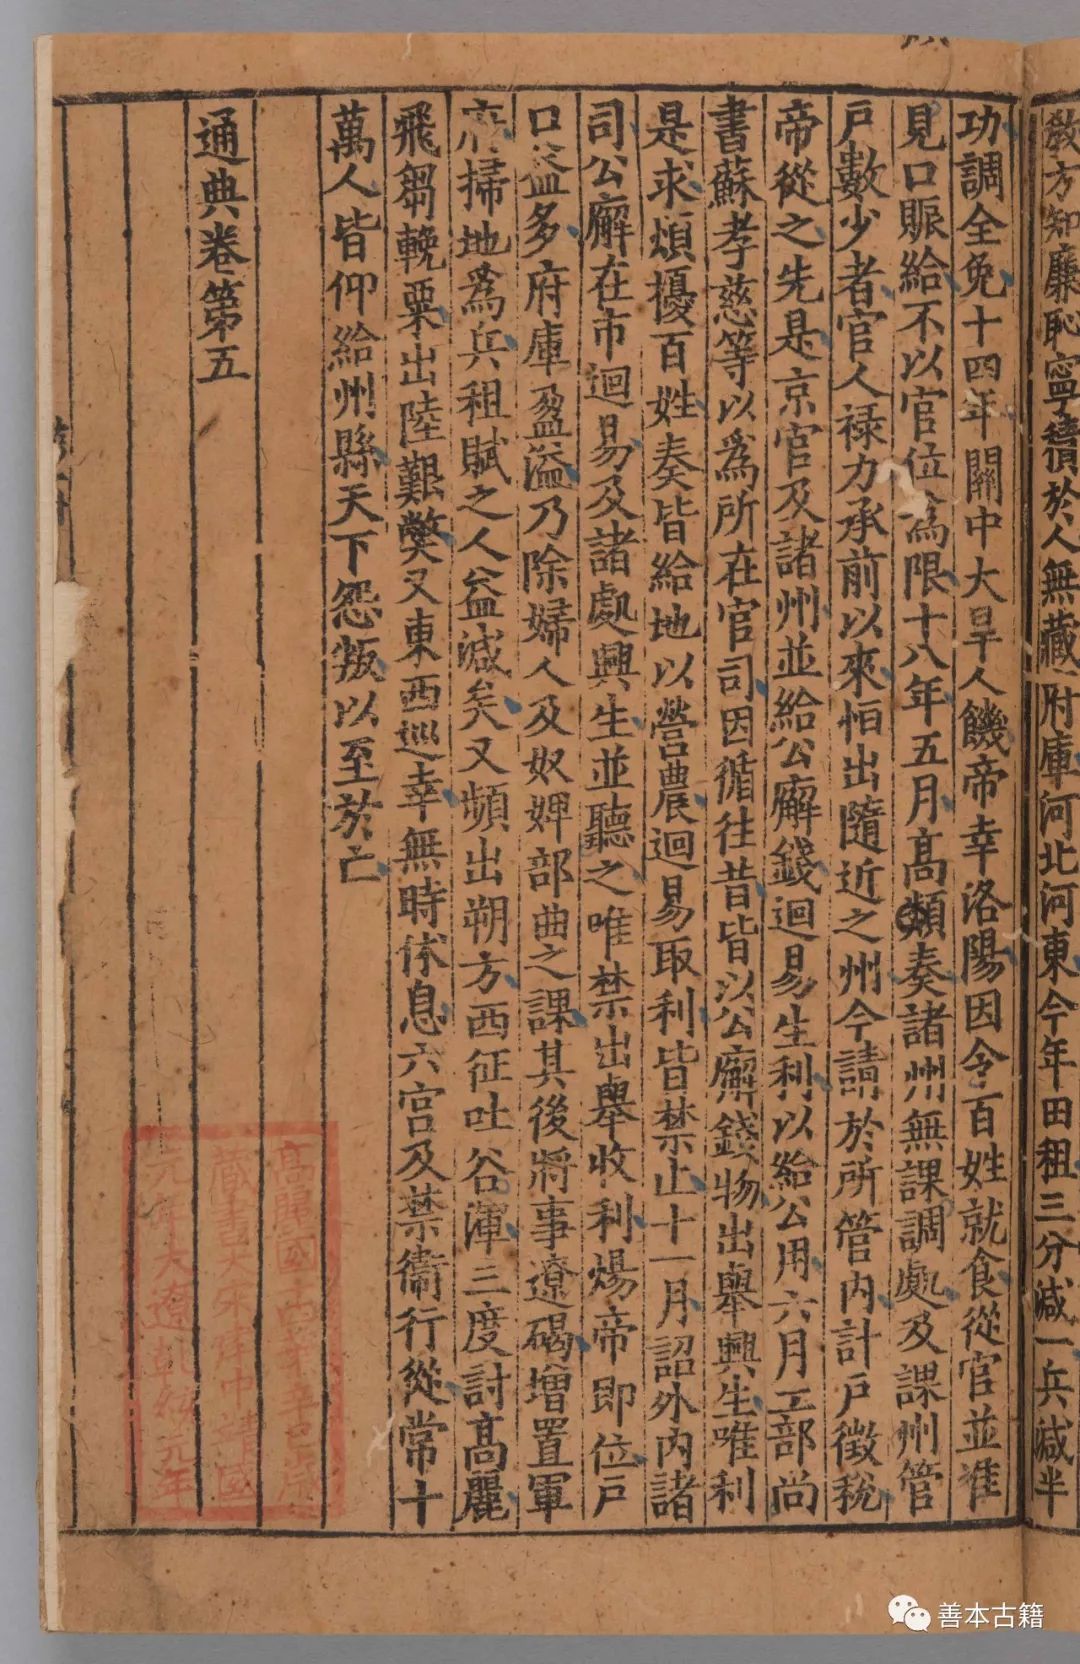 敎方知廉恥寧積於人無藏府庫河北河東今年田租三分減一兵減半
功調全免十四年關中大旱人饑帝幸洛陽因令百姓就食從官並准
見口賑給不以官位為限十八年五月高熲奏諸州無課調處及課州管
戶數少者官人祿力承前以來恒出隨近之州今請於所管內計戶徵稅
帝從之先是京官及諸州並給公廨錢迴易生利以給公用六月工部尚
書蘇孝慈等以爲所在官司因循往昔皆以公廨錢物出舉興生唯利
是求煩擾百姓奏皆給地以營農迴易取利皆禁止十一月詔外內諸
司公廨在市迴易及諸處興生並聽之唯禁出舉收利煬帝即位戶
口益多府庫盈溢乃除婦人及奴婢部曲之課其後將事遼碣增置軍
府掃地爲兵租賦之人益減矣又頻出朔方西征吐谷渾三度討高麗
飛芻輓粟出陸艱弊又東西巡幸無時休息六宮及禁衞行從常十
萬人皆仰給州縣天下怨叛以至於亡
通典卷第五
高麗國十四葉辛巳歲
藏書大宋建中靖國
元年大遼乾統元年
善本古籍